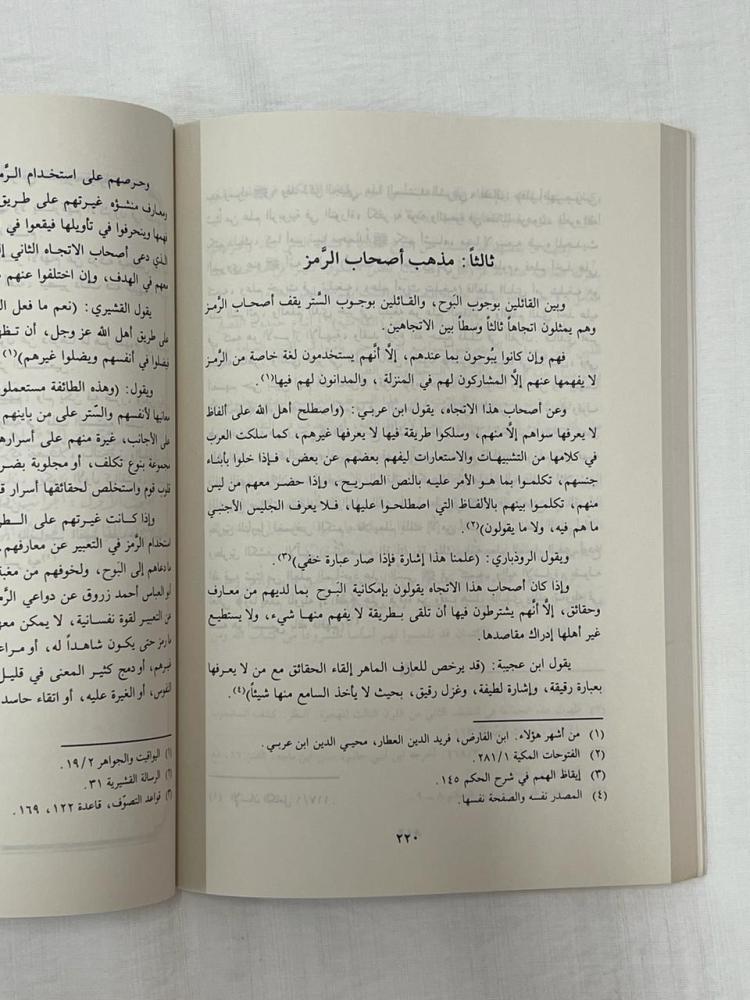 ثالثاً: مذهب أصحاب الرَّمز
وبين القائلين بوجوب البَوح، والقـائلين بوجـوب السَّتر يقف أصحـاب الرَّمز
وهم يمثلون اتجاهاً ثالثاً وسطاً بين الاتجاهين.
فهم وإن كانوا يبُوحون بما عندهم، إلاَّ أنَّهم يستخدمون لغة خاصة من الرَّمز
لا يفهمها عنهم إلاَّ المشاركون لهم في المنزلة، والمدانون لهم فيها(١).
وعن أصحاب هذا الاتجاه، يقول ابن عربـي: (واصطلح أهل الله على ألفاظ
لا يعرفها سواهم إلاَّ منهم، وسلكوا طريقة فيها لا يعرفها غيرهم، كما سلكت العرب
في كلامها من التشبيهـات والاستعارات ليفهم بعضهم عن بعض، فـإذا خلوا بأبنـاء
جنسهم، تكلمـوا بما هـو الأمر عليـه بالنص الصـريـح، وإذا حضـر معهم من ليس
منهم، تكلمـوا بينهم بالألفـاظ التي اصطلحـوا عليها، فـلا يعرف الجليس الأجنبـي
ما هم فيه، ولا ما يقولون)(٢).
ويقول الروذباري: (علمنا هذا إشارة فإذا صار عبارة خفي)(٣).
وإذا كان أصحاب هذا الاتجاه يقولون بإمكانية البَـوح بما لديهم من معارف
وحقائق، إلاَّ أنَّهم يشترطون فيها أن تلقى بـطريقة لا يفهم منهـا شيء، ولا يستطيع
غير أهلها إدراك مقاصدها.
يقول ابن عجيبة: (قد يرخص للعارف الماهر إلقاء الحقائق مع من لا يعـرفها
بعبارة رقيقة، وإشارة لطيفة، وغزل رقيق، بحيث لا يأخذ السامع منها شيئاً)(٤).
(١) من أشهر هؤلاء: ابن الفارض، فريد الدين العطار، محيـي الدين ابن عربـي.
(٢) الفتوحات المكية ٢٨١/١.
(٣) إيقاظ الهمم في شرح الحكم ١٤٥.
(٤) المصدر نفسه والصفحة نفسها.
٢٢٠
وحـرصهم على استخـدام الـرَّ
ومعـارف منشـؤه غيـرتهم على طـريق
فهمها وينحرفوا في تأويلها فيقعوا في
الـذي دعى أصحاب الاتجـاه الثاني إل
معهم في الهدف، وإن اختلفوا عنهم
يقول القشيري: (نعم ما فعل ال
على طريق أهل الله عز وجل، أن تـظه
فيضلوا في أنفسهم ويضلوا غيرهم)(١)
ويقول: (وهذه الطائفة مستعملو
معانيها لأنفسهم والسَّتر على من باينهم
على الأجانب، غيرة منهم على أسراره
مجموعة بنوع تكلف، أو مجلوبة بضـر
قلوب قوم واستخلص لحقائقها أسرار ق
وإذا كـانت غيـرتهم على السـطر
استخدام الرَّمز في التعبير عن معارفهم
ما دعاهم إلى البَوح، ولخوفهم من مغبـة
أبو العباس أحمد زروق عن دواعي الرَّم
عن التعبيـر لقوة نفسـانية، لا يمكن معه
ما رمز حتى يكون شاهـداً له، أو مـراعـ
غيرهم، أو دمج كثيـر المعنى في قليـل
النفوس، أو الغيرة عليه، أو اتقاء حاسد
(١) اليواقيت والجواهر ١٩/٢.
(٢) الرسالة القشيرية ٣١.
(٣) قواعد التصوّف، قاعدة ١٢٢، ١٦٩.